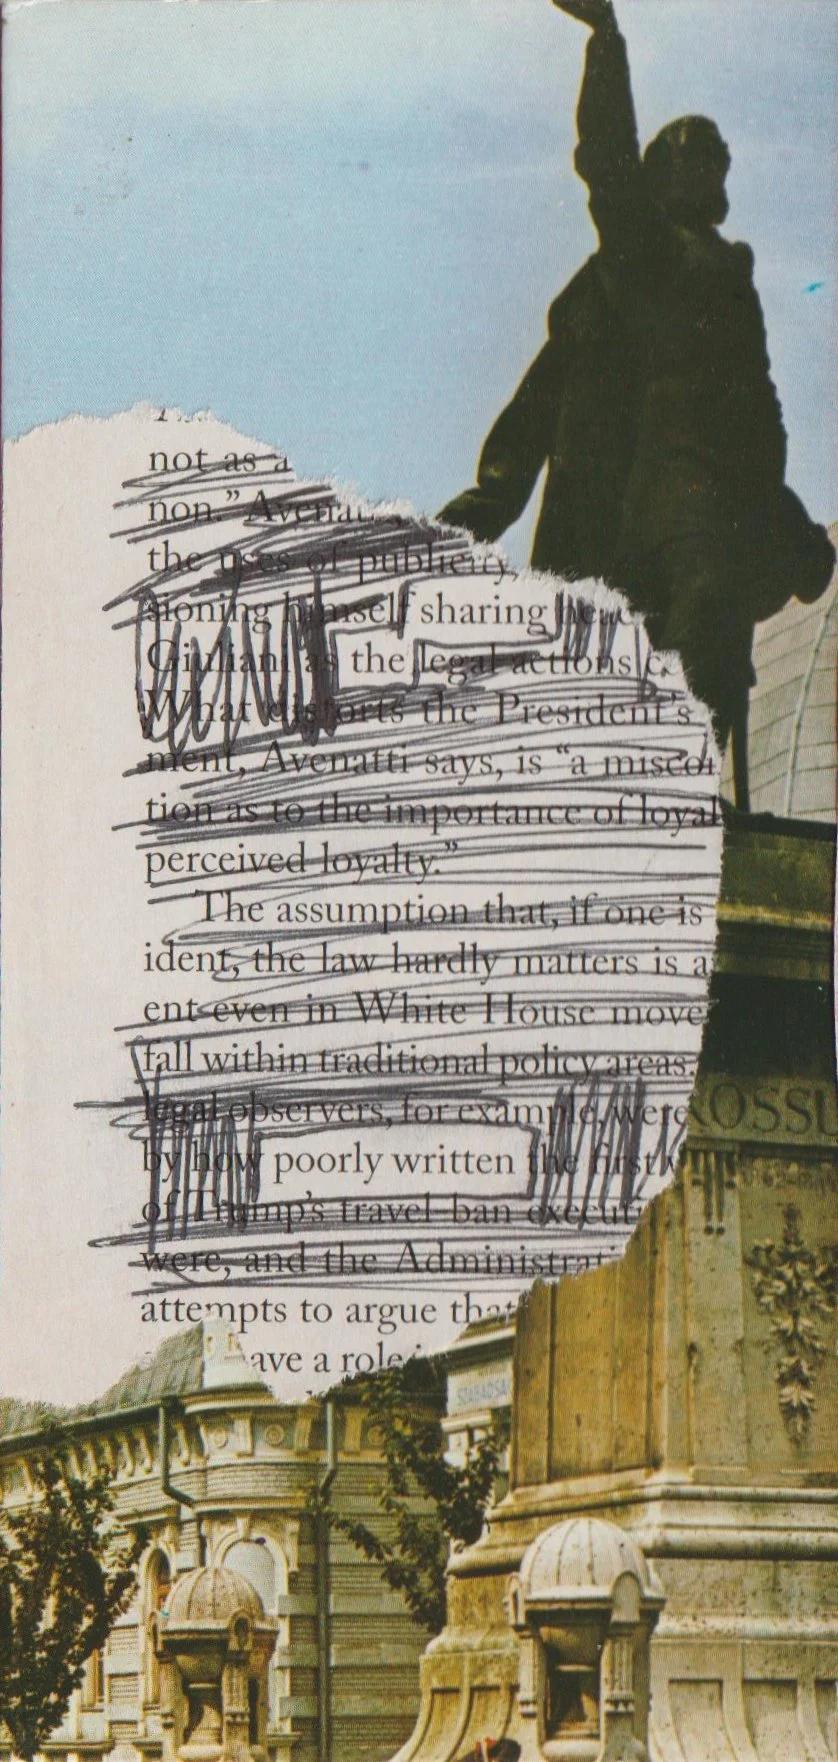 not as a
non.” Avenatti
the uses of publicity,
sioning himself sharing
Giuliani as the legal actions
What distorts the President’s
ment, Avenatti says, is “a miscon
tion as to the importance of loyal
perceived loyalty.”
The assumption that, if one is
ident, the law hardly matters is a
ent even in White House move
fall within traditional policy areas.
legal observers, for example, were
by how poorly written the first
of Trump’s travel-ban executi
were, and the Administrati
attempts to argue that
ave a role
KOSSU
SZABADSÁ